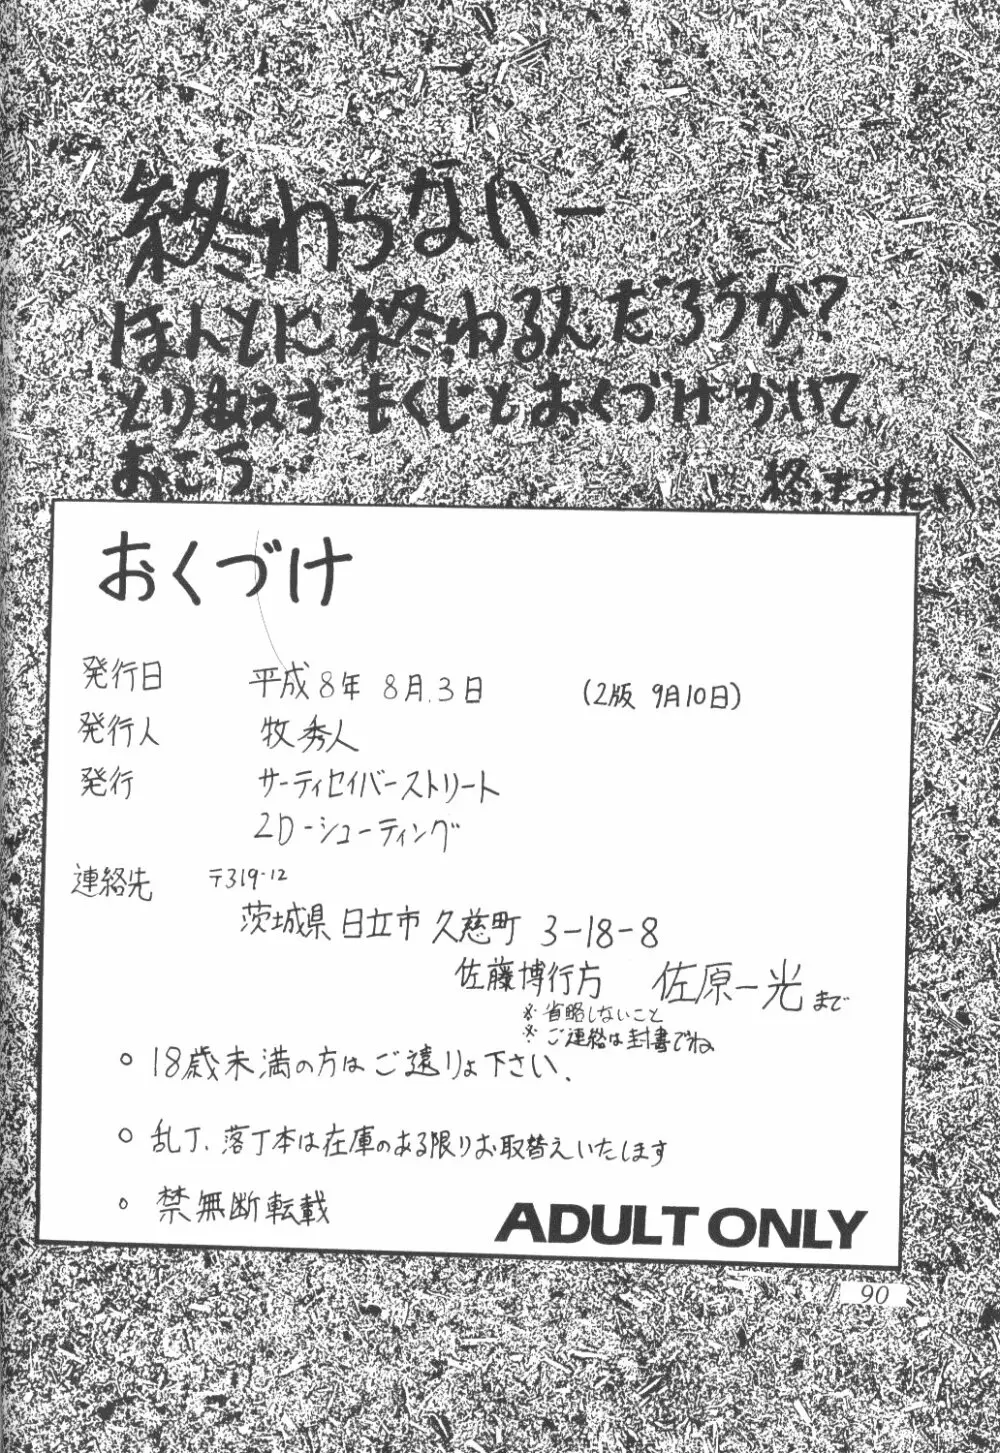 終わらないー
ほんとに終わるんだろうか?
とりあえず もくじとおくづけかいて
おこう
終っきみたい
おくづけ
発行日 平成8年 8月.3日 (2版 9月10日)
発行人 牧 秀人
発行 サーティセイバーストリート
2D-シューティング
連絡先 〒319-12
茨城県 日立市 久慈町 3-18-8
佐藤博行方 佐原一光まで
※省略しないこと
※ご連絡は封書でね
○ 18歳未満の方はご遠りょ下さい.
○ 乱丁、落丁本は在庫のある限りお取替えいたします
○ 禁無断転載
ADULT ONLY
90